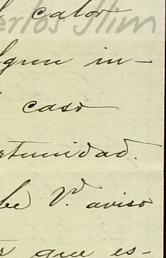 calor
lgun in-
caso
rtunidad.
be V. aviso
que es-